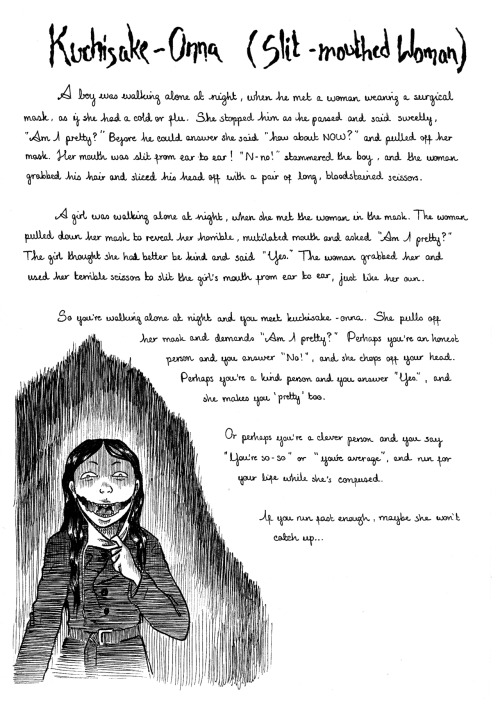 Kuchisake-Onna (Slit-mouthed Woman)
A boy was walking alone at night, when he met a woman wearing a surgical
mask, as if she had a cold or flu. She stopped him as he passed and said sweetly,
"Am I pretty?" Before he could answer she said "how about NOW?" and pulled off her
mask. Her mouth was slit from ear to ear! "N-no!" stammered the boy, and the woman
grabbed his hair and sliced his head off with a pair of long, bloodstained scissors.
A girl was walking alone at night, when she met the woman in the mask. The woman
pulled down her mask to reveal her horrible, mutilated mouth and asked "Am I pretty?"
The girl thought she had better be kind and said "Yes." The woman grabbed her and
used her terrible scissors to slit the girl's mouth from ear to ear, just like her own.
So you're walking alone at night and you meet kuchisake-onna. She pulls off
her mask and demands "Am I pretty?" Perhaps you're an honest
person and you answer "No!", and she chops off your head.
Perhaps you're a kind person and you answer "Yes.", and
she makes you 'pretty' too.
Or perhaps you're a clever person and you say
"You're so-so" or "you're average", and run for
your life while she's confused.
If you run fast enough, maybe she won't
catch up...